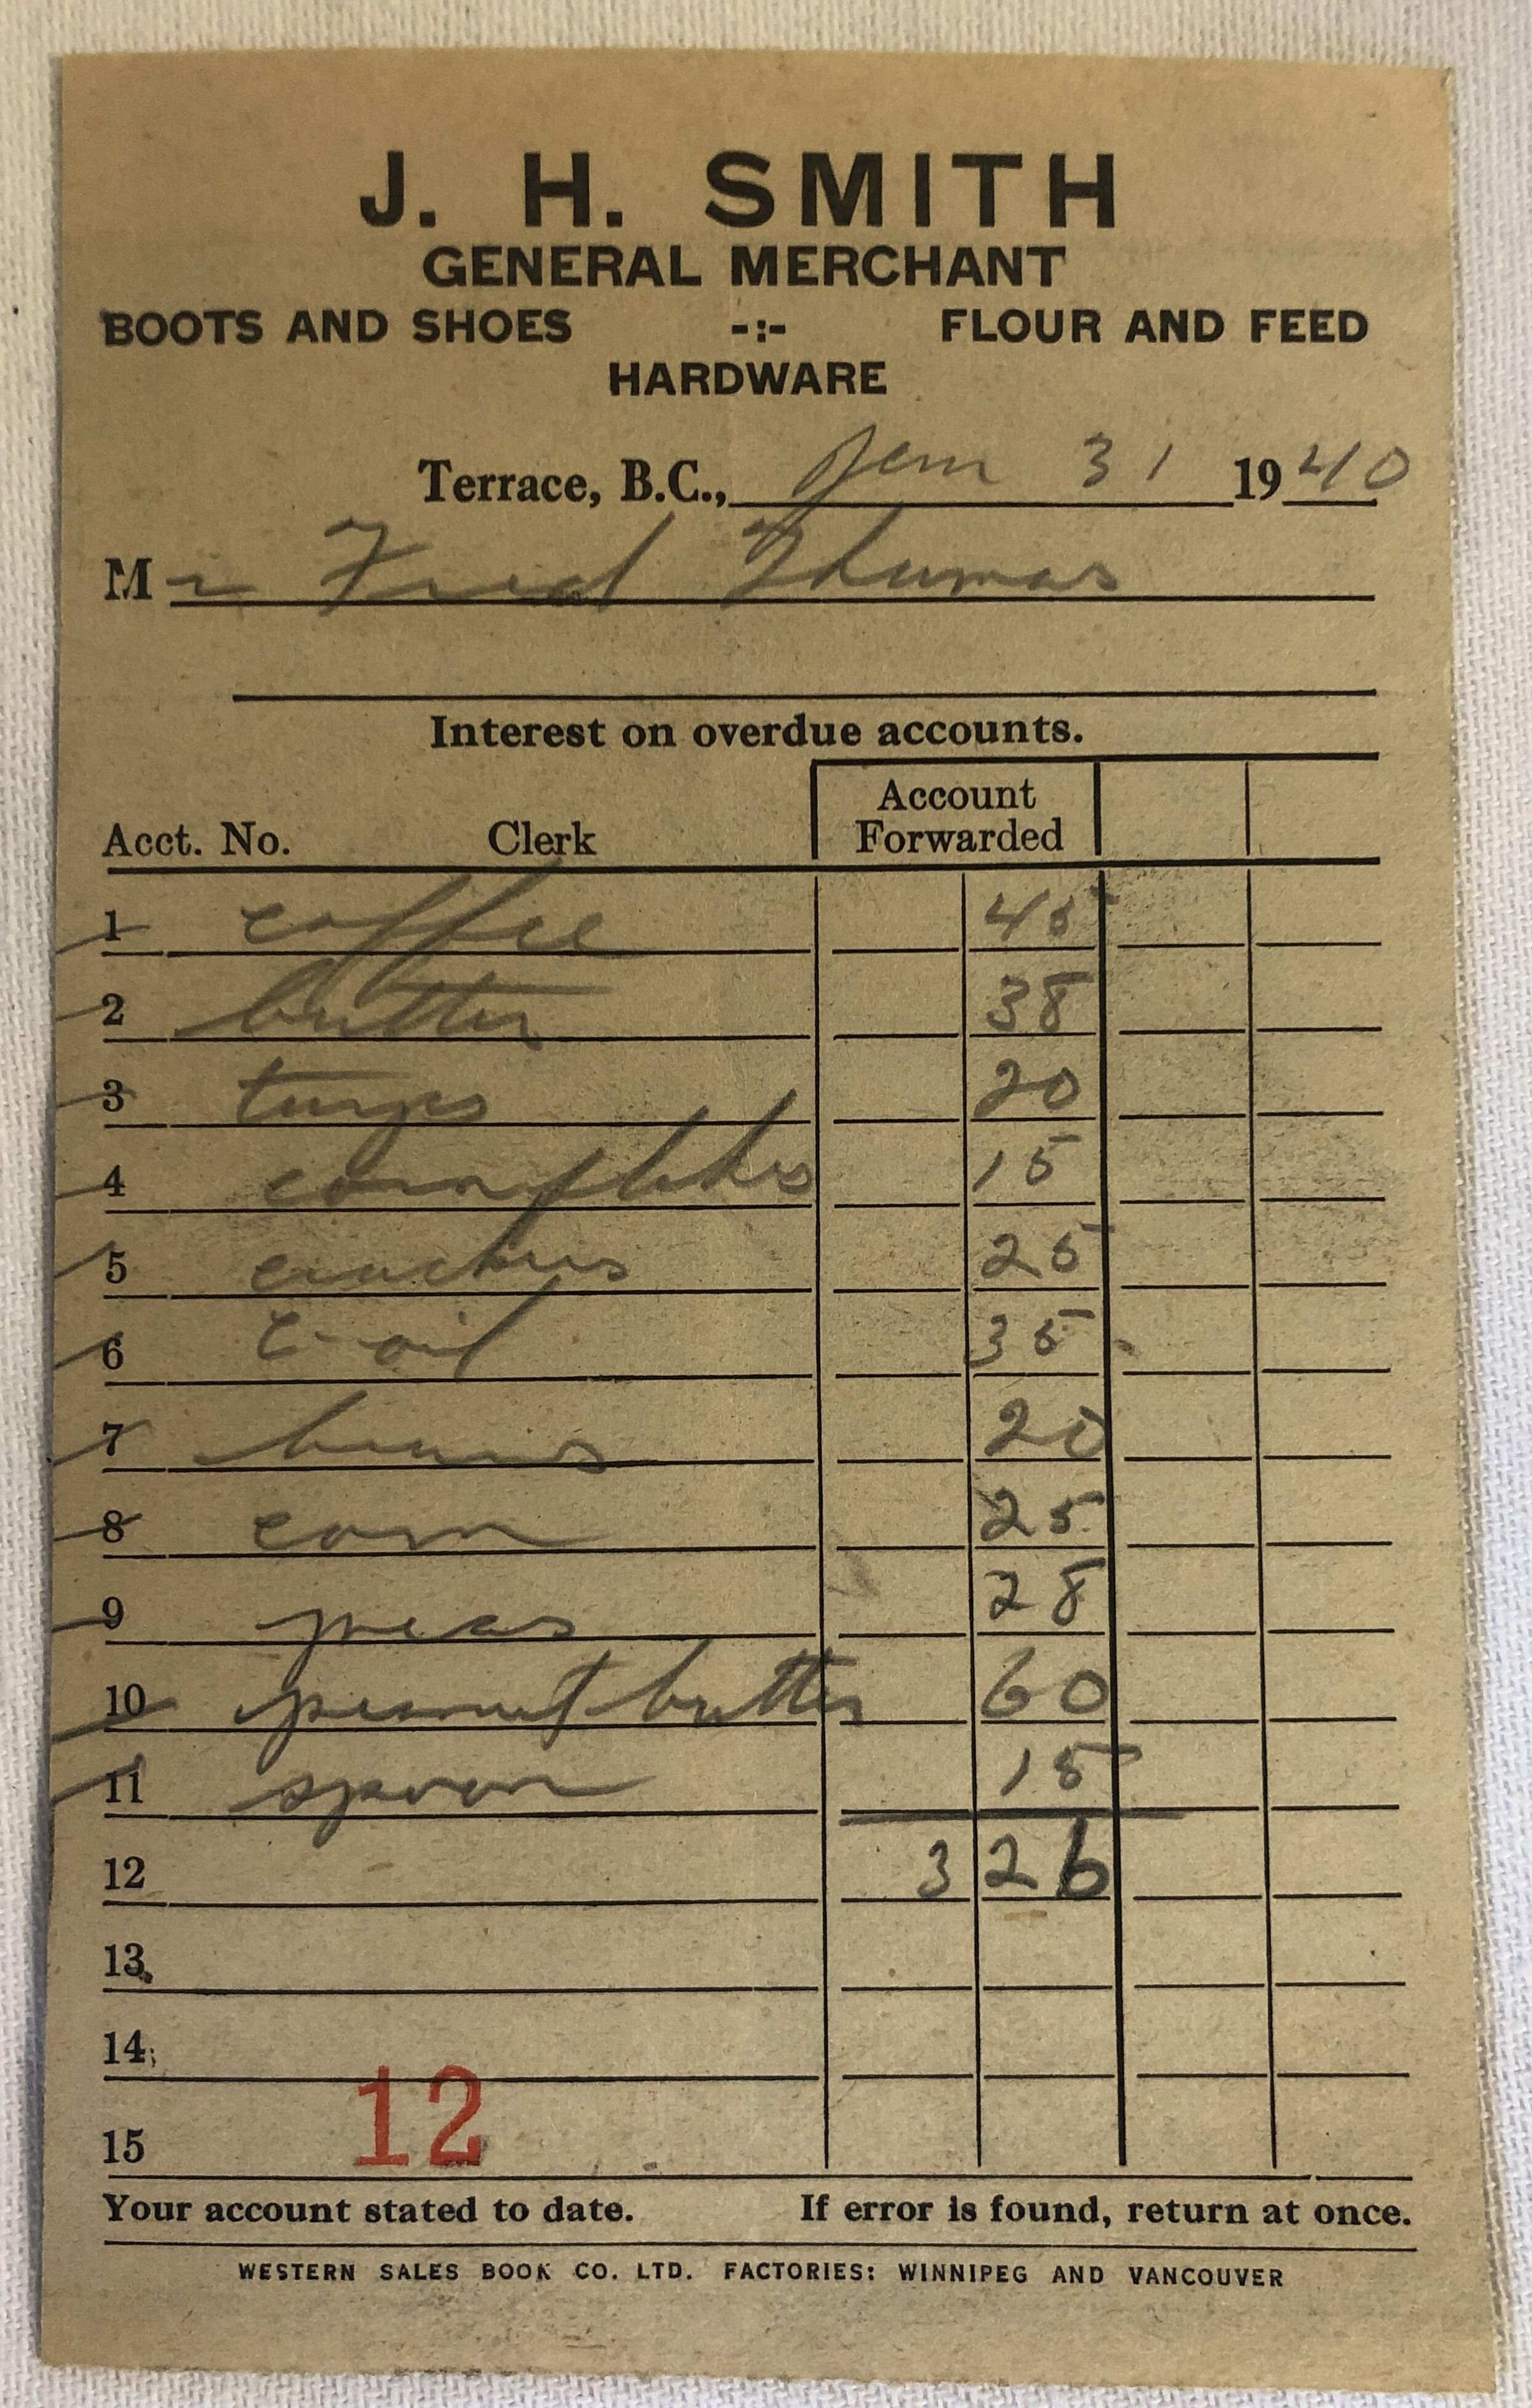 J. H. SMITH
GENERAL MERCHANT
BOOTS AND SHOES -:- FLOUR AND FEED
HARDWARE
Terrace, B.C., Jan 31 1940
Mr Fred Thomas
Interest on overdue accounts.
Acct. No. Clerk Account Forwarded
1 coffee 45
2 butter 38
3 turps 20
4 cornflakes 15
5 crackers 25
6 C-oil 35
7 beans 20
8 corn 25
9 peas 28
10 peanut butter 60
11 spoon 15
12 3 26
13
14
15 12
Your account stated to date. If error is found, return at once.
WESTERN SALES BOOK CO. LTD. FACTORIES: WINNIPEG AND VANCOUVER